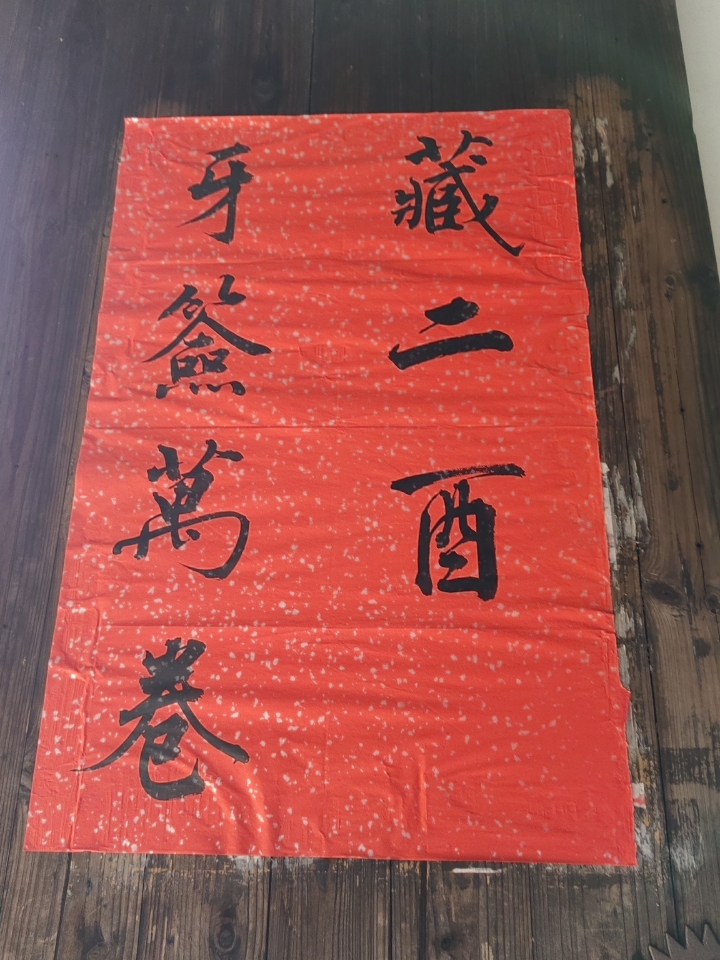 藏二酉
牙籤萬卷